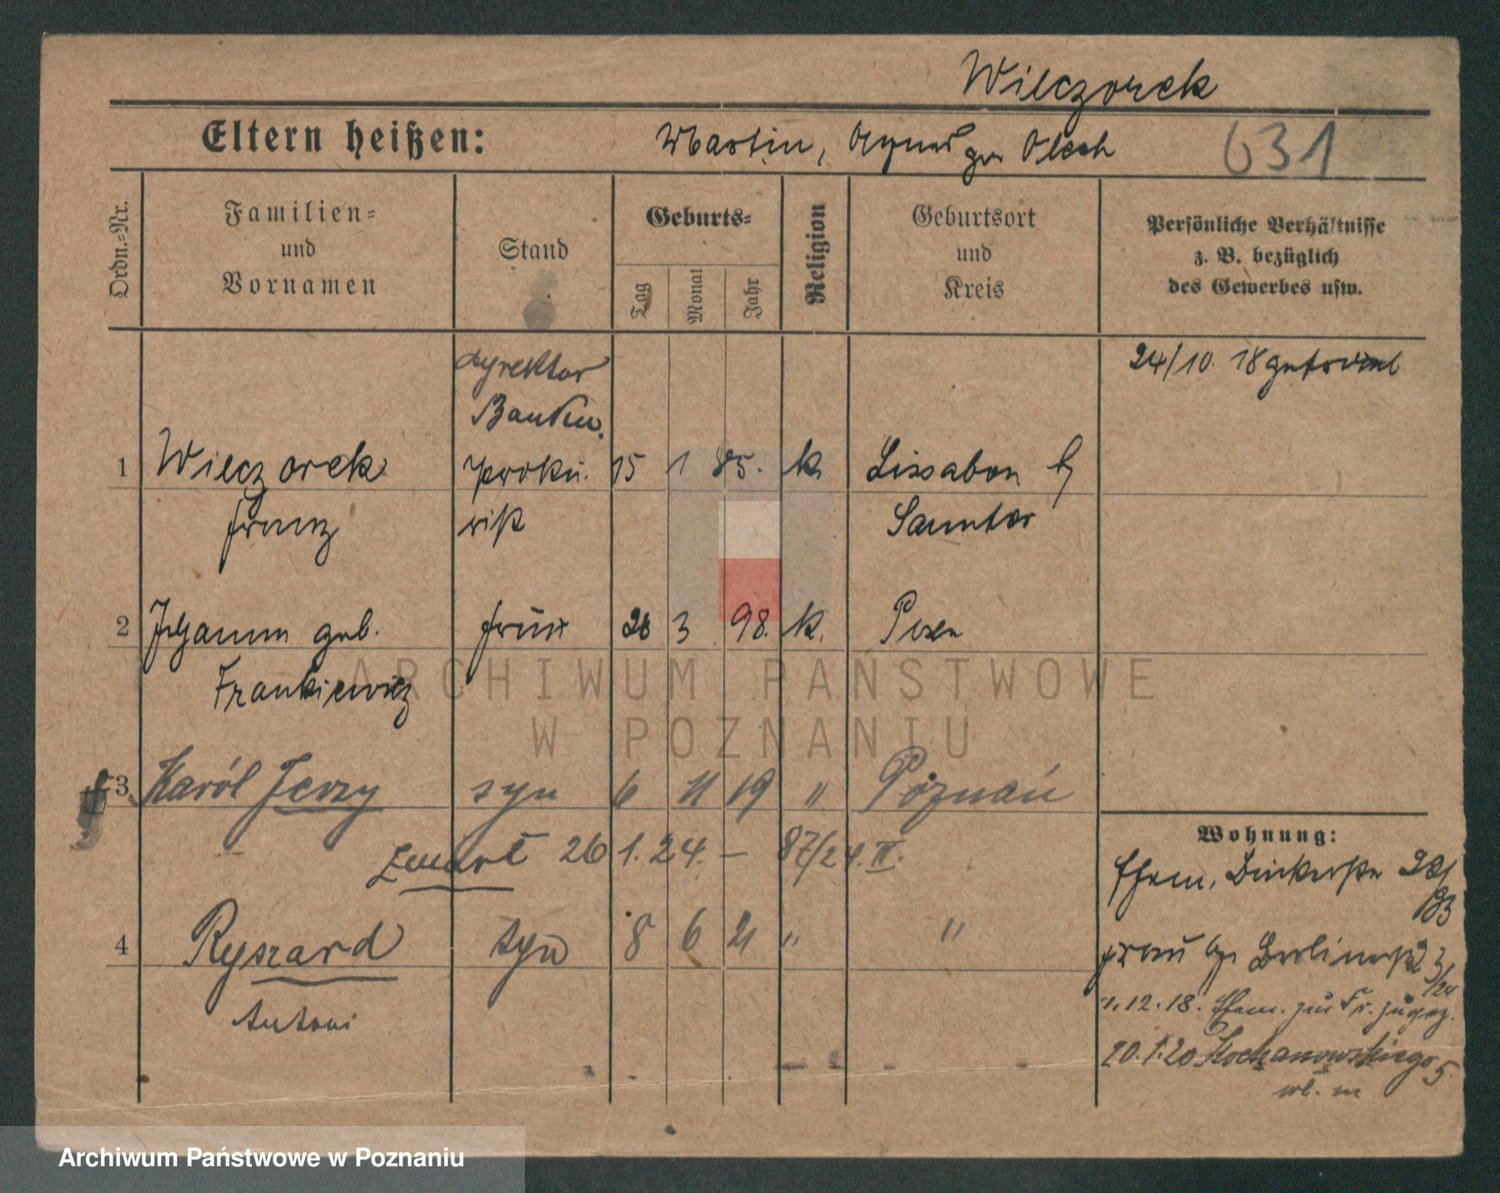 Wieczorek
Eltern heißen: Martin, Agnes geb. Olech 631
Ordn.-Nr.
Familien- und Vornamen
Stand
Geburts-
Tag
Monat
Jahr
Religion
Geburtsort und Kreis
Persönliche Verhältnisse
z. B. bezüglich
des Gewerbes usw.
dyrektor
24/10. 18 getraut
Banku.
1 Wieczorek proku- 15 1 85. k. Lissabon
Franz rist Samter
2 geb. Frau 28 3 98. k. Posen
Frankiewicz
3 Karól Jerzy syn 6 11 19 " Poznań
zmarł 26 1. 24. – 87/24. II.
4 Ryszard syn 8 6 21 " "
Antoni
Wohnung:
Ehem.
Frau Berlinerstr
1.12.18. Ehem. zur Fr. zugez.
20.1.20 Kochanowskiego 5
wł. m
ARCHIWUM PAŃSTWOWE
W POZNANIU
Archiwum Państwowe w Poznaniu